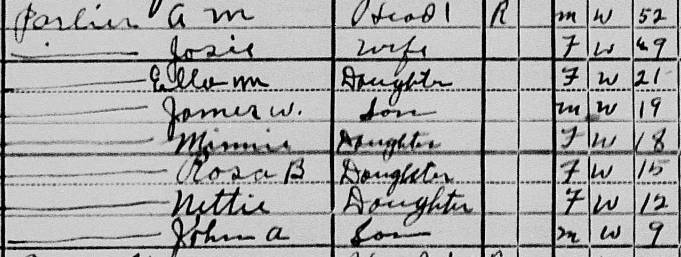 Parlier A M Head 1 R M W 52
Josie Wife F W 49
Ella M Daughter F W 21
James W. Son M W 19
Minnie Daughter F W 18
Rosa B Daughter F W 15
Nettie Daughter F W 12
John A Son M W 9